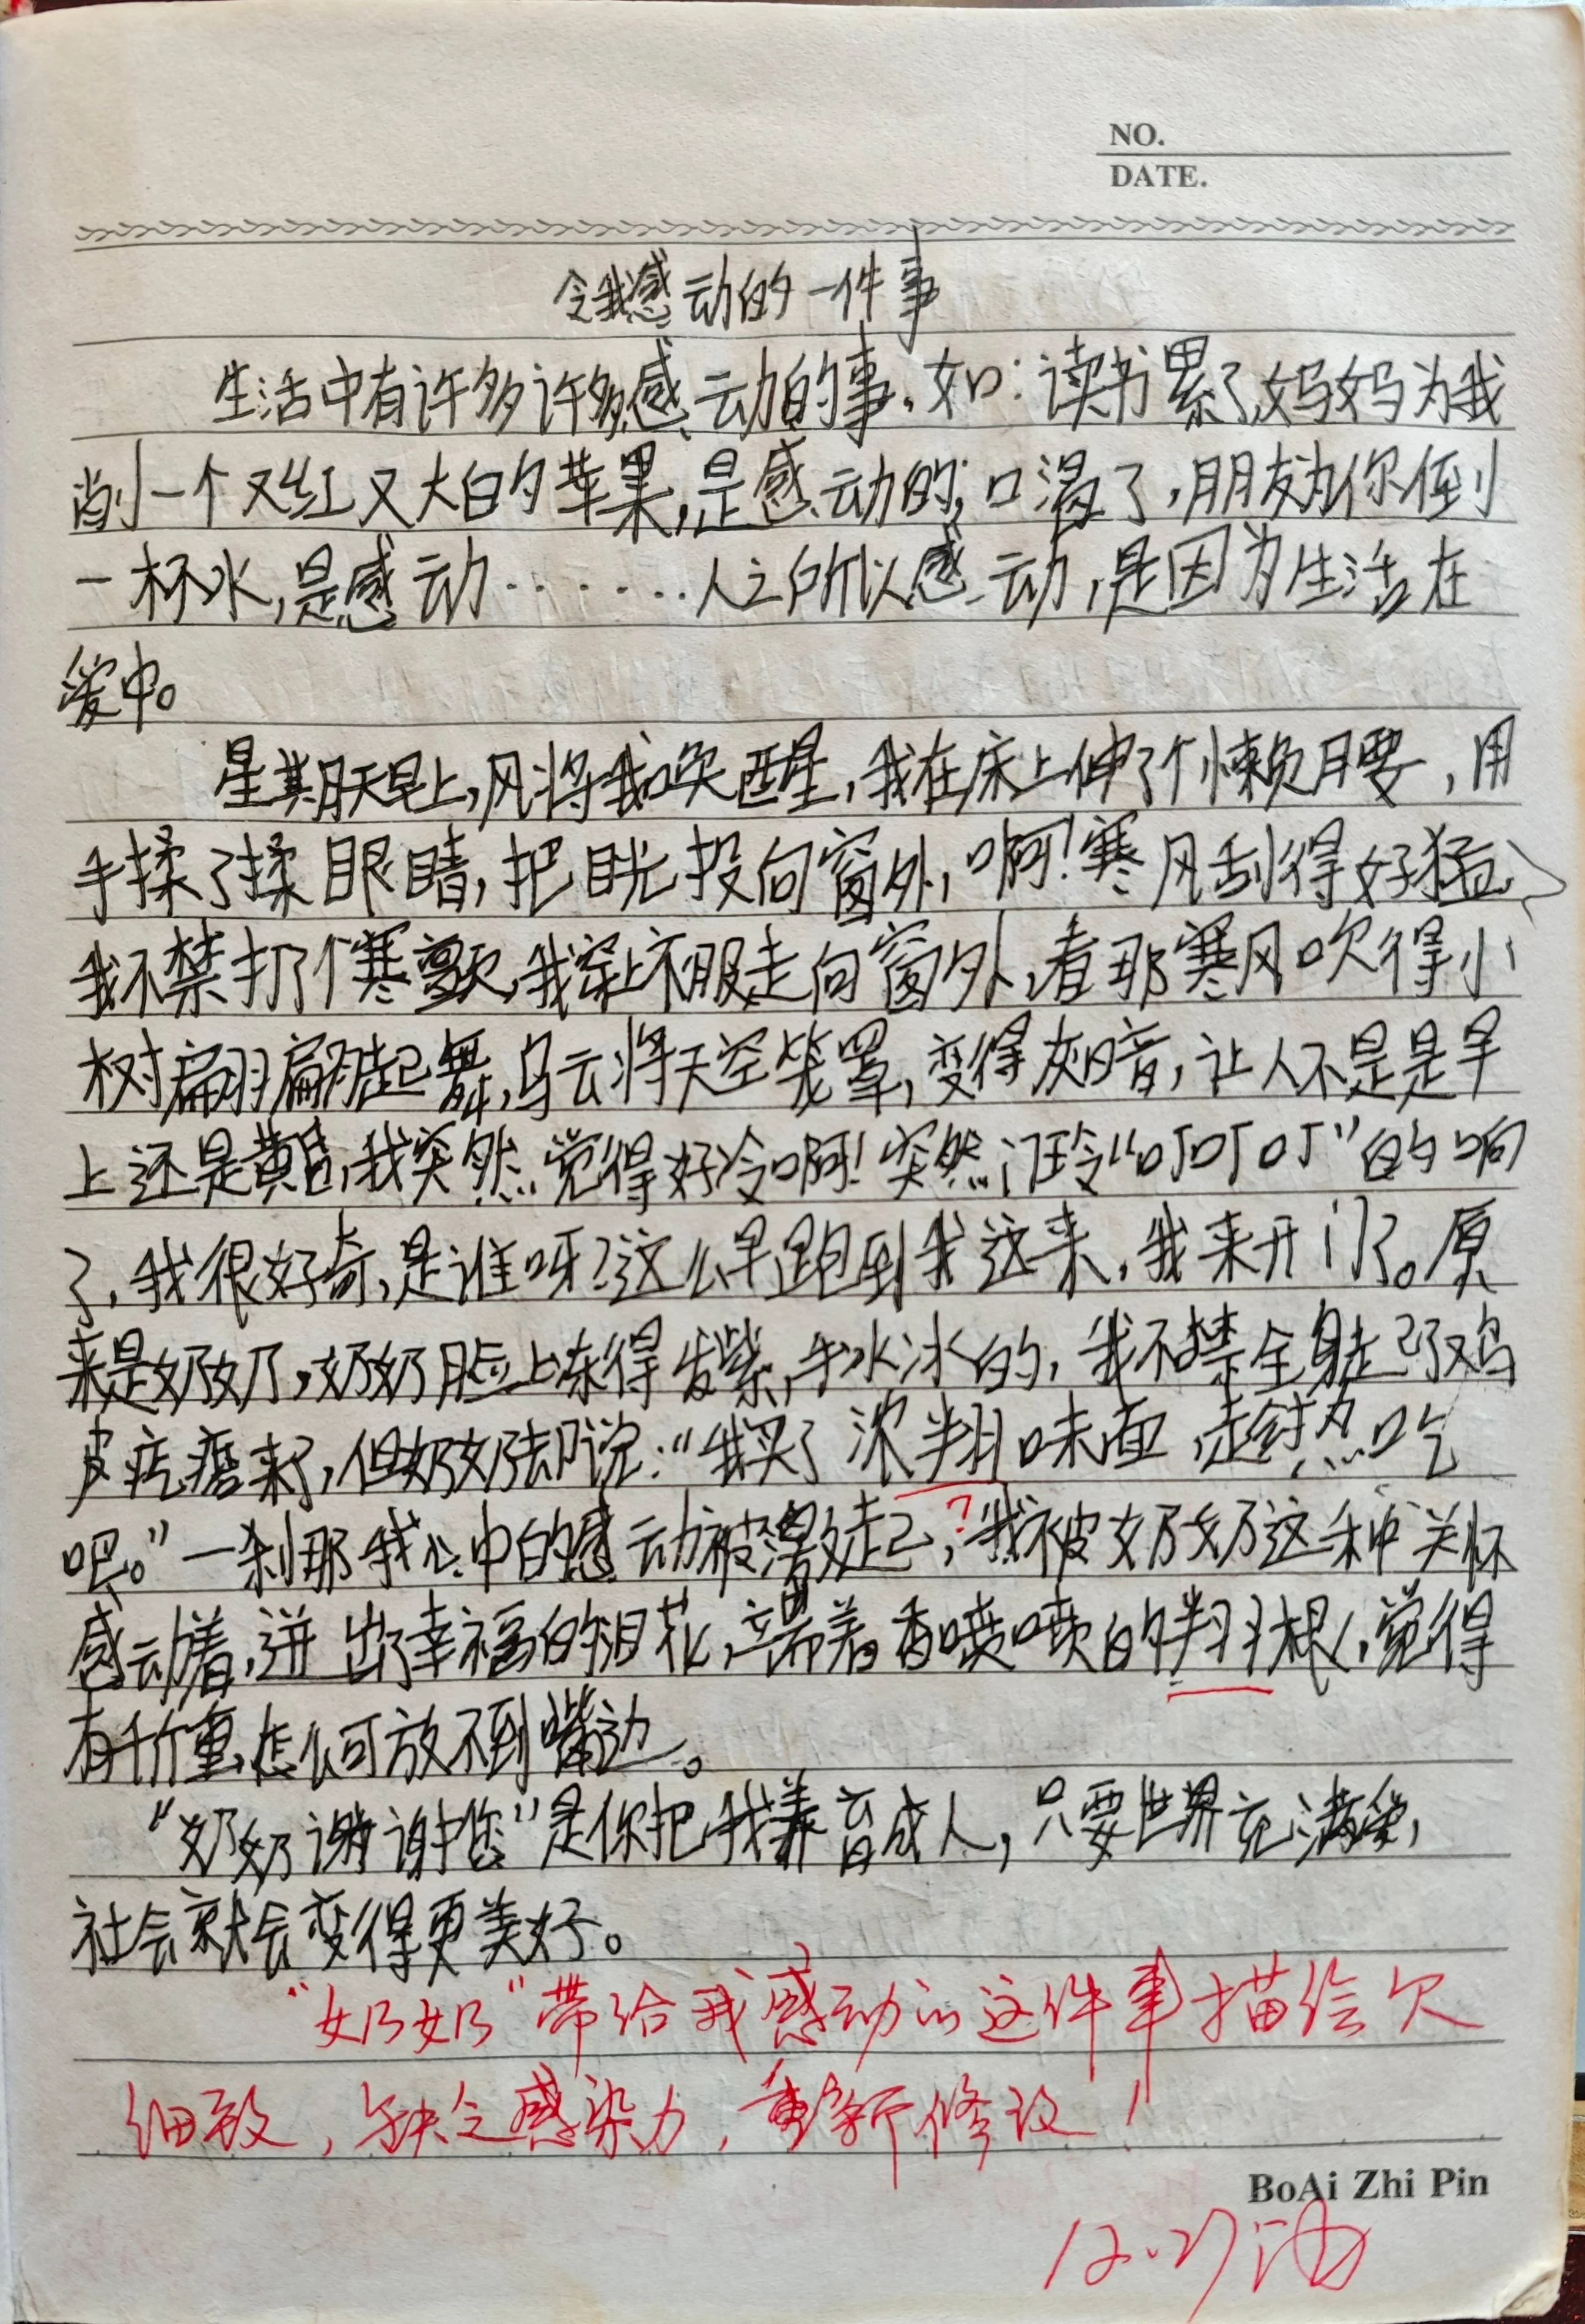 NO.
DATE.
令我感动的一件事
生活中有许多许多感动的事。如：读书累了,妈妈为我
削一个又红又大的苹果,是感动的;口渴了,朋友为你倒
一杯水,是感动……人之所以感动,是因为生活在
爱中。
星期天早上,风将我唤醒,我在床上伸了个懒腰,用
手揉了揉眼睛,把目光投向窗外,啊!寒风刮得好猛,
我不禁打了个寒颤,我穿上衣服走向窗外,看那寒风吹得小
树翩翩起舞,乌云将天空笼罩,变得灰暗,让人不是是早
上还是黄昏,我突然觉得好冷啊!突然门铃“叮叮叮”的响
了,我很好奇,是谁呀?这么早跑到我这来,我来开门了。原
来是奶奶,奶奶脸上冻得发紫,手冰冰的,我不禁全身起了鸡
皮疙瘩来了,但奶奶却说:“我买了 味面,趁热吃
吧。”一刹那我心中的感动被激起,?我被奶奶这种关怀
感动着,迸出了幸福的泪花,端着香喷喷的 ,觉得
有千斤重,怎么可放不到嘴边。
“奶奶谢谢您”是你把我养育成人,只要世界充满爱,
社会就会变得更美好。
“奶奶”带给我感动的这件事描绘欠
细致,缺乏感染力,重新修改!
BoAi Zhi Pin
12.27